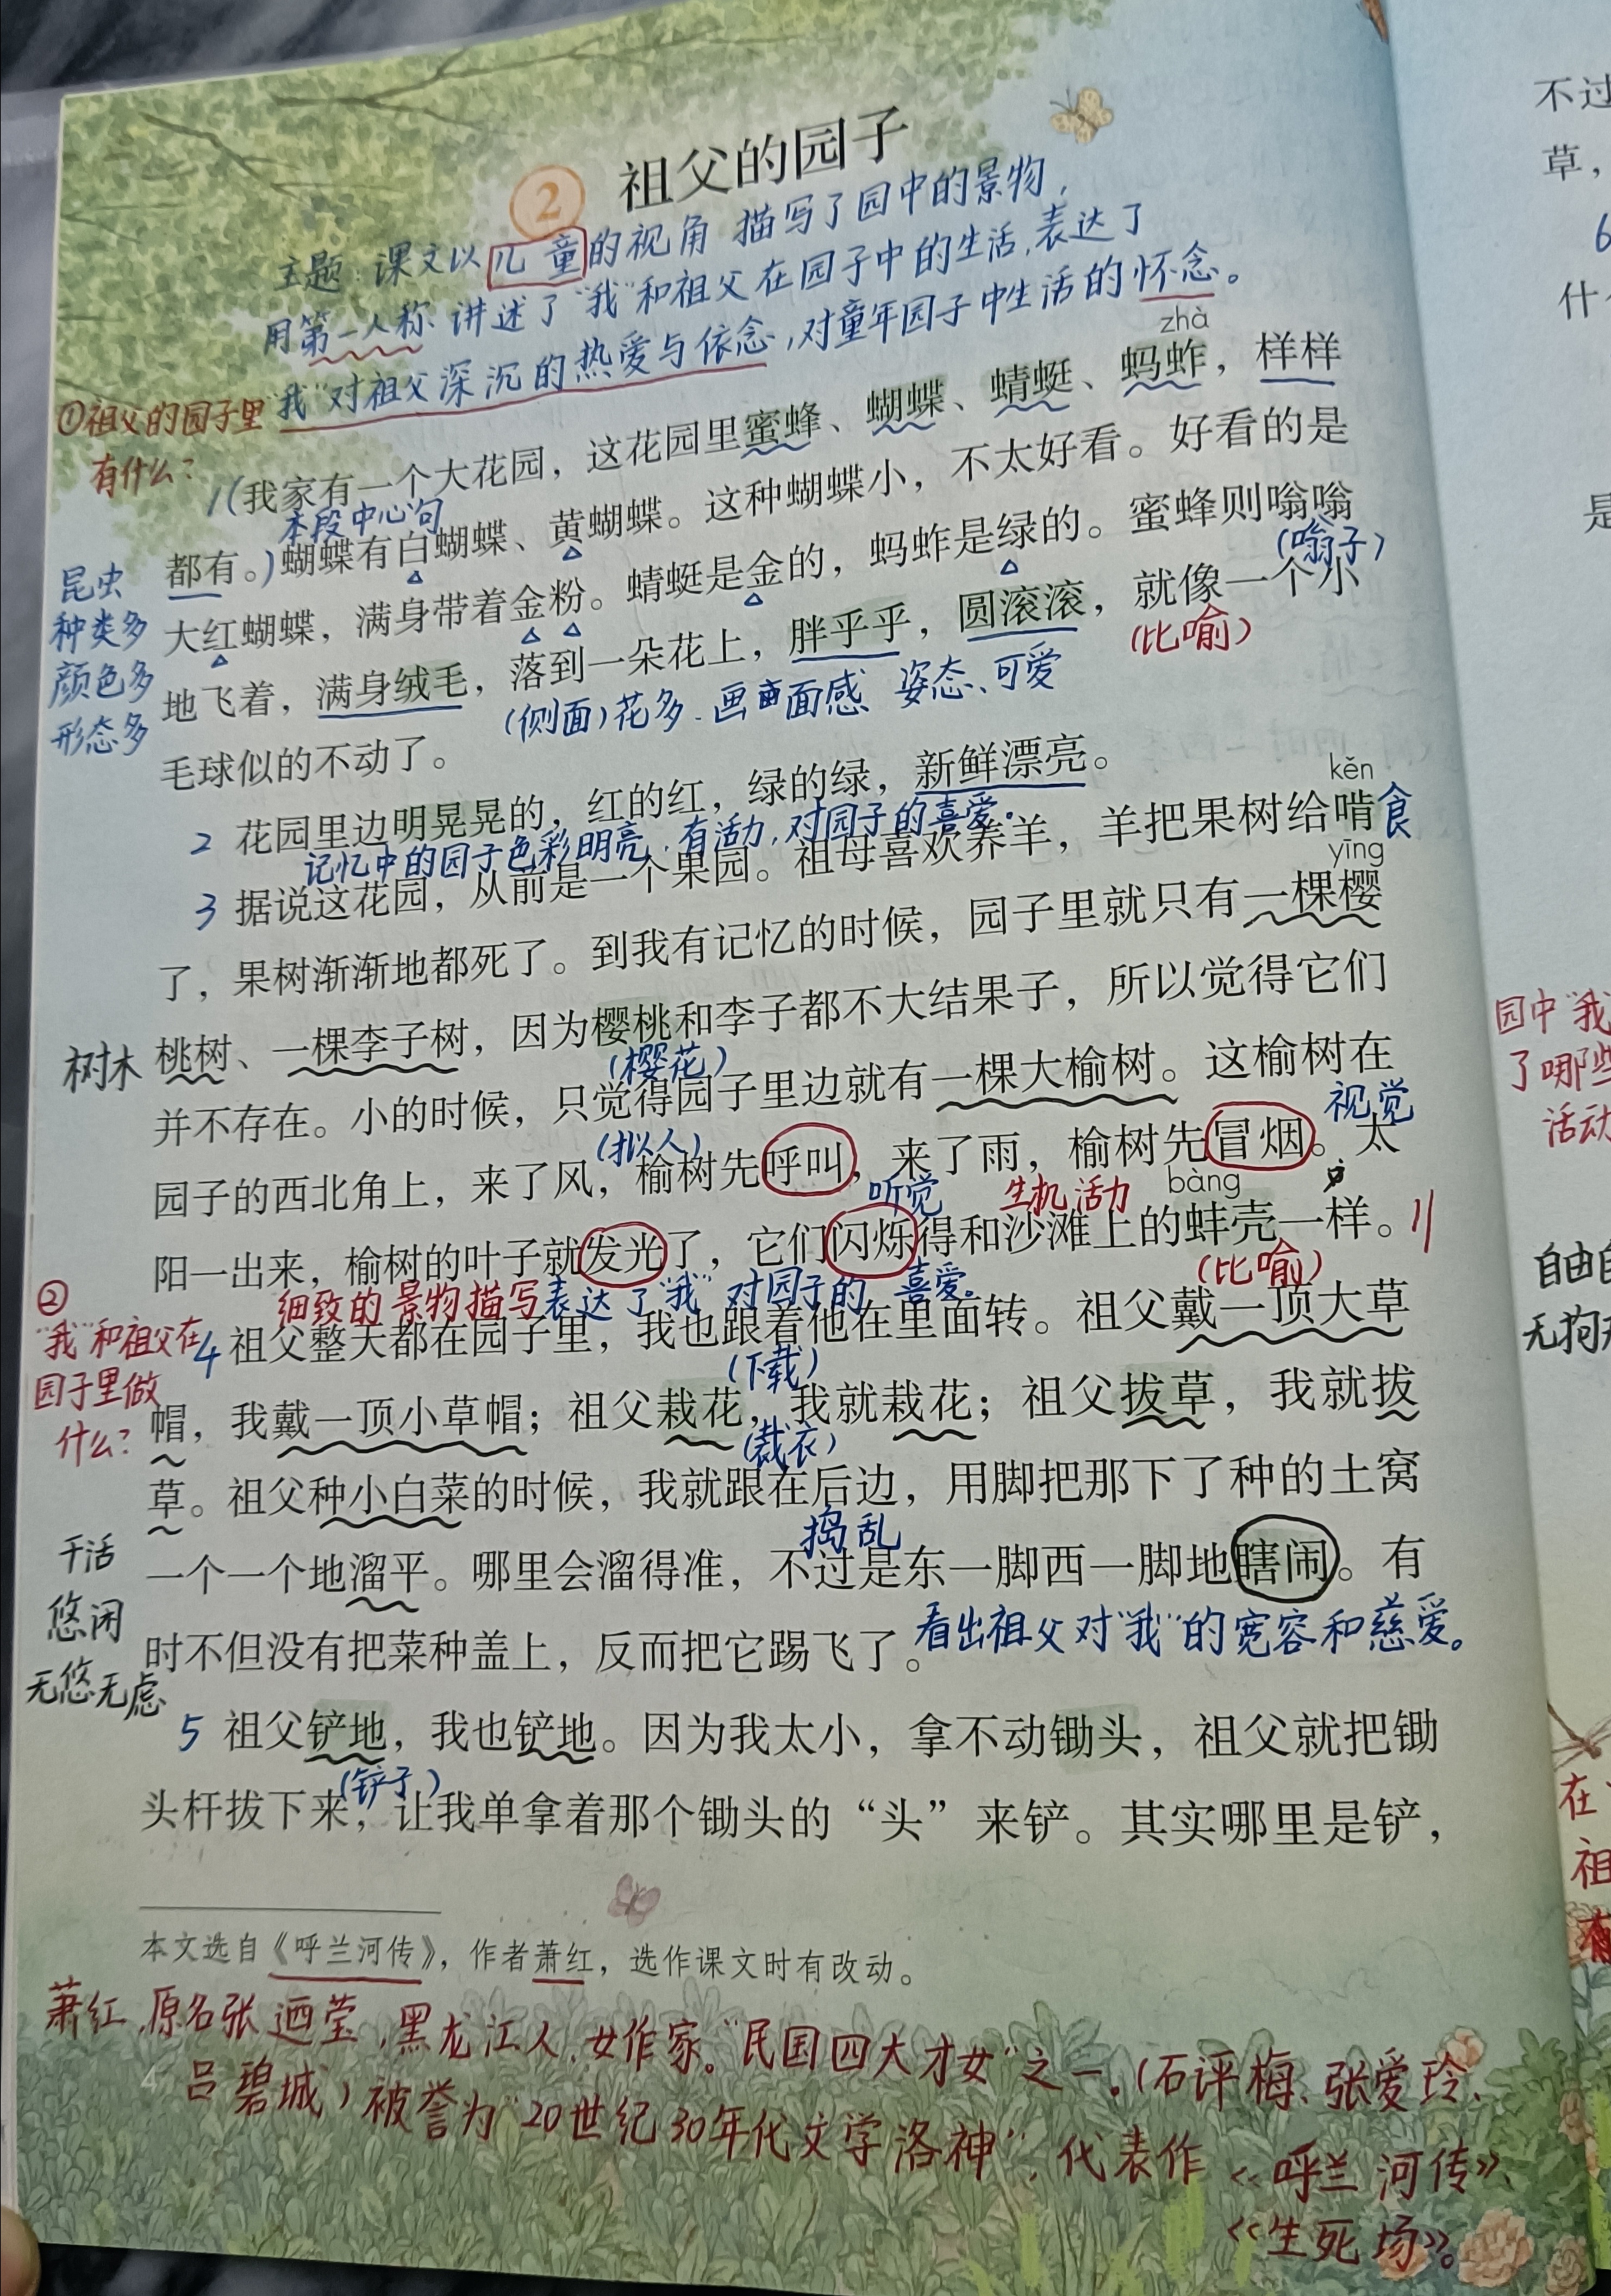 ② 祖父的园子
主题:课文以儿童的视角 描写了园中的景物,
用第一人称 讲述了“我”和祖父在园子中的生活,表达了
“我”对祖父深沉的热爱与依念,对童年园子中生活的怀念。
①祖父的园子里
有什么?
zhà
1(我家有一个大花园,这花园里蜜蜂、蝴蝶、蜻蜓、蚂蚱,样样
本段中心句
都有。)蝴蝶有白蝴蝶、黄蝴蝶。这种蝴蝶小,不太好看。好看的是
大红蝴蝶,满身带着金粉。蜻蜓是金的,蚂蚱是绿的。蜜蜂则嗡嗡
(嗡子)
地飞着,满身绒毛,落到一朵花上,胖乎乎,圆滚滚,就像一个小
(比喻)
(侧面)花多、画面感 姿态、可爱
毛球似的不动了。
昆虫
种类多
颜色多
形态多
2 花园里边明晃晃的,红的红,绿的绿,新鲜漂亮。
记忆中的园子色彩明亮,有活力,对园子的喜爱。
kěn
3 据说这花园,从前是一个果园。祖母喜欢养羊,羊把果树给啃食
yīng
了,果树渐渐地都死了。到我有记忆的时候,园子里就只有一棵樱
桃树、一棵李子树,因为樱桃和李子都不大结果子,所以觉得它们
树木
(樱花)
并不存在。小的时候,只觉得园子里边就有一棵大榆树。这榆树在
视觉
(拟人)
园子的西北角上,来了风,榆树先呼叫,来了雨,榆树先冒烟。太
听觉 生机活力 bàng
阳一出来,榆树的叶子就发光了,它们闪烁得和沙滩上的蚌壳一样。
(比喻)
细致的景物描写表达了“我”对园子的 喜爱。
②
“我”和祖父在
园子里做
什么?
4 祖父整天都在园子里,我也跟着他在里面转。祖父戴一顶大草
(下载)
帽,我戴一顶小草帽;祖父栽花,我就栽花;祖父拔草,我就拔
(裁衣)
草。祖父种小白菜的时候,我就跟在后边,用脚把那下了种的土窝
捣乱
一个一个地溜平。哪里会溜得准,不过是东一脚西一脚地瞎闹。有
时不但没有把菜种盖上,反而把它踢飞了。看出祖父对“我”的宽容和慈爱。
干活
悠闲
无悠无虑
5 祖父铲地,我也铲地。因为我太小,拿不动锄头,祖父就把锄
(铲子)
头杆拔下来,让我单拿着那个锄头的“头”来铲。其实哪里是铲,
本文选自《呼兰河传》,作者萧红,选作课文时有改动。
萧红,原名张廼莹,黑龙江人,女作家。“民国四大才女”之一。(石评梅、张爱玲、
吕碧城)被誉为“20世纪30年代文学洛神”,代表作《呼兰河传》、
《生死场》。
4
不过
草,
6
什
是
园中“我”
了哪些
活动
自由自
无拘无
在
祖